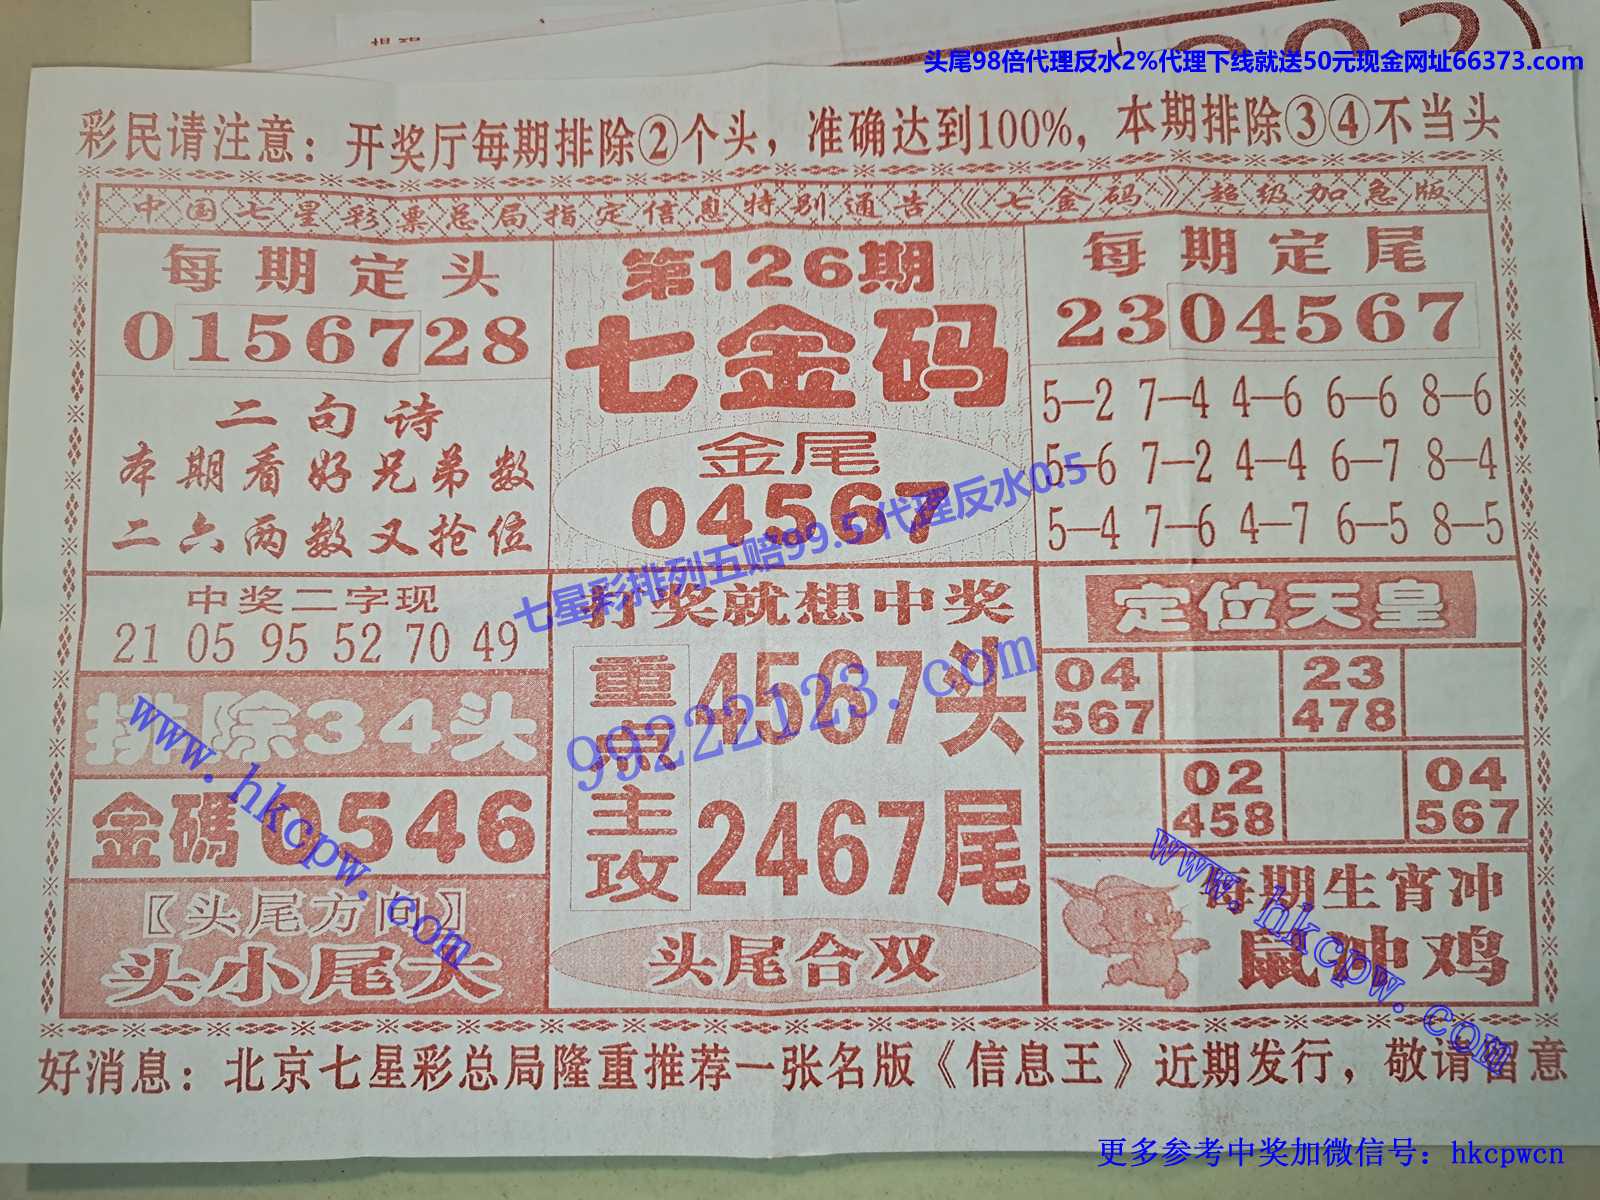 头尾98倍代理反水2%代理下线就送50元现金网址66373.com
彩民请注意：开奖厅每期排除②个头，准确达到100%，本期排除③④不当头
中国七星彩票总局指定信息特别通告《七金码》超级加急版
每期定头
0156728
二句诗
本期看好兄弟数
二六两数又抢位
中奖二字现
21 05 95 52 70 49
排除34头
金碼0546
〖头尾方向〗
头小尾大
第126期
七金码
金尾
04567
七星彩排列五赔99.5代理反水0.5
打奖就想中奖
重点主攻
4567头
2467尾
99222123.com
头尾合双
每期定尾
2304567
5—2 7—4 4—6 6—6 8—6
5—6 7—2 4—4 6—7 8—4
5—4 7—6 4—7 6—5 8—5
定位天皇
04 23
567 478
02 04
458 567
每期生宵冲
鼠冲鸡
www.hkcpw.com
www.hkcpw.com
好消息：北京七星彩总局隆重推荐一张名版《信息王》近期发行，敬请留意
更多参考中奖加微信号：hkcpwcn